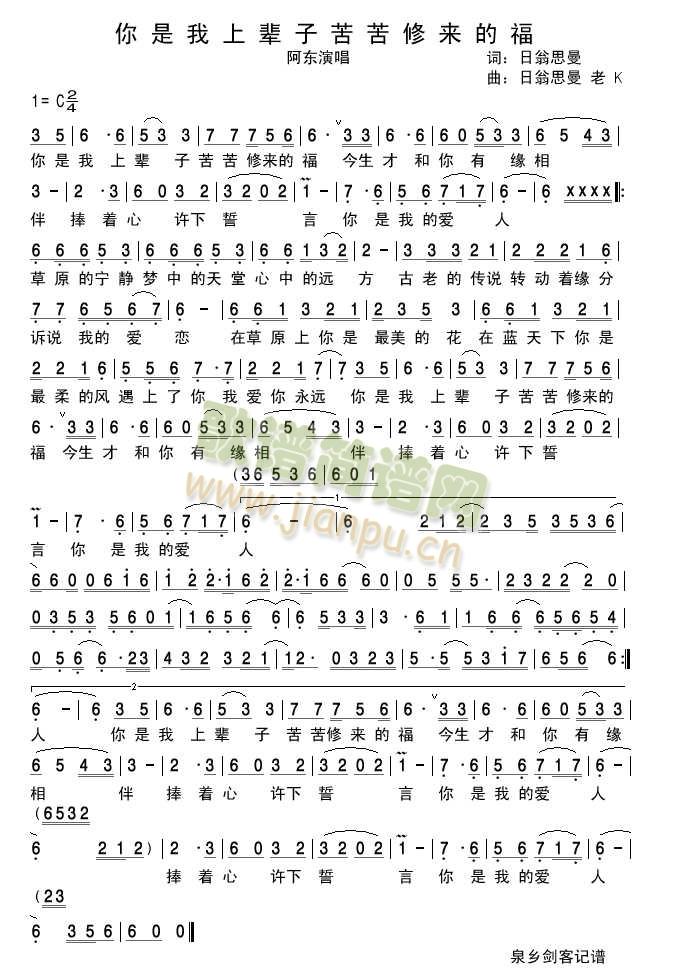 你是我上辈子苦苦修来的福
阿东演唱
词：日翁思曼
曲：日翁思曼 老 K
1= C 2/4
3 5 | 6 · 6 | 5 3 3 | 7 7 7 5 6 | 6 · 3 3 | 6 · 6 | 6 0 5 3 3 | 6 5 4 3 |
你是我 上辈 子苦苦修来的福 今生才和你有缘相
3 - | 2 · 3 | 6 0 3 2 | 3 2 0 2 | 1 - | 7 · 6 | 5 6 7 1 7 | 6 - | 6 X X X X |:
伴 捧着心 许下誓 言你是我的爱人
6 6 6 5 3 | 6 6 6 5 3 | 6 6 1 3 2 | 2 - | 3 3 3 2 1 | 2 2 2 1 6 |
草原的宁静梦中的天堂心中的远方 古老的传说转动着缘分
7 7 6 5 6 7 | 6 - | 6 6 1 3 2 1 | 3 3 2 1 | 6 6 1 3 2 1 |
诉说我的爱恋 在草原上你是最美的花在蓝天下你是
2 2 1 6 | 5 5 6 7 · 7 | 2 2 1 2 7 | 7 3 5 | 6 · 6 | 5 3 3 | 7 7 7 5 6 |
最柔的风遇上了你我爱你永远你是我上辈子苦苦修来的
6 · 3 3 | 6 · 6 | 6 0 5 3 3 | 6 5 4 3 | 3 - | 2 · 3 | 6 0 3 2 | 3 2 0 2 |
福今生才和你有缘相 伴 捧着心许下誓
(3 6 5 3 6 | 6 0 1
1
1 - | 7 · 6 | 5 6 7 1 7 | 6 - | 6 2 1 2 | 2 3 5 3 5 3 6 |
言你是我的爱人
6 6 0 0 6 1 6 | 1 2 2 · 1 6 2 | 2 · 1 6 2 6 6 6 0 | 0 5 5 5 · | 2 3 2 2 2 0 |
0 3 5 3 5 6 0 1 | 1 6 5 6 6 | 6 5 3 3 | 3 · 6 1 | 1 6 6 6 5 6 5 4 |
0 5 6 6 · 2 3 | 4 3 2 3 2 1 | 1 2 · 0 3 2 3 | 5 · 5 5 3 1 7 | 6 5 6 6 · :|
2
6 - | 6 3 5 | 6 · 6 | 5 3 3 | 7 7 7 5 6 | 6 · 3 3 | 6 · 6 | 6 0 5 3 3 |
人 你是我上辈子苦苦修来的福今生才和你有缘
6 5 4 3 | 3 - | 2 · 3 | 6 0 3 2 | 3 2 0 2 | 1 - | 7 · 6 | 5 6 7 1 7 | 6 - |
相 伴 捧着心许下誓 言你是我的爱人
(6 5 3 2
6 2 1 2) | 2 · 3 | 6 0 3 2 | 3 2 0 2 | 1 - | 7 · 6 | 5 6 7 1 7 | 6 - |
捧着心许下誓 言你是我的爱人
(2 3
6 3 5 6 | 6 0 0 ‖
泉乡剑客记谱
歌谱简谱网
www.jianpu.cn